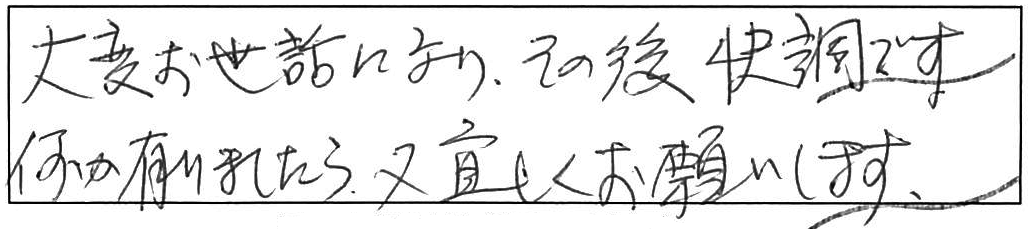 大変お世話になり、その後快調です
何か有りましたら、又宜しくお願いします、